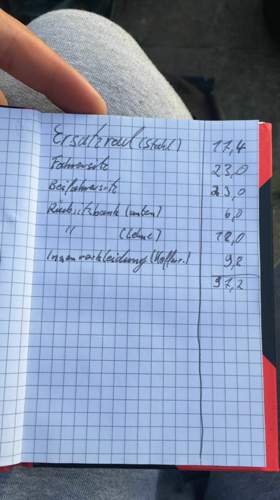 Ersatzrad (Stahl) 17,4
Fahrersitz 23,0
Beifahrersitz 23,0
Rücksitzbank (unten) 6,0
" (Lehne) 18,0
Innenverkleidung (Kofferr.) 9,8
97,2